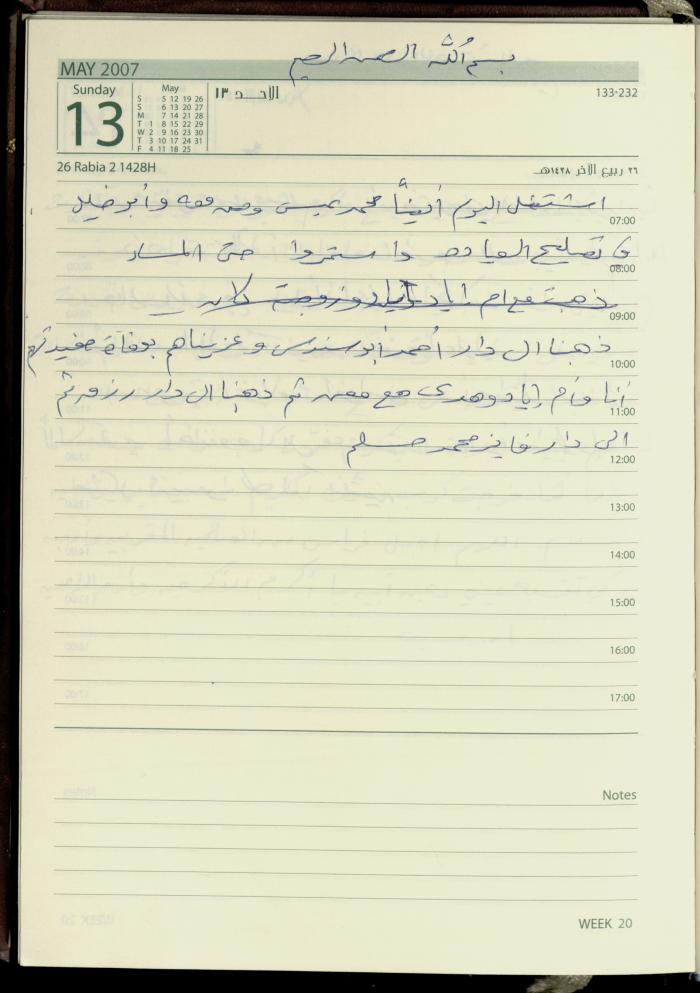 بسم الله الرحمن الرحيم
MAY 2007
Sunday
13
May
S 5 12 19 26
S 6 13 20 27
M 7 14 21 28
T 1 8 15 22 29
W 2 9 16 23 30
T 3 10 17 24 31
F 4 11 18 25
الأحد ١٣
133-232
26 Rabia 2 1428H
٢٦ ربيع الآخر ١٤٢٨هـ
اشتغل اليوم أيضاً محمد عيسى ومن معه وأبو خليل
07:00
في تصليح العياده واستمروا حتى المساء
08:00
ذهبت مع ام اياد وزوجة
09:00
ذهبنا الى دار أحمد أبو سندس وعزيناهم بوفاة حفيدتهم
10:00
أنا وأم إياد وهدى مع معن ثم ذهبنا الى دار رزق ثم
11:00
الى دار فايز محمد مسلم
12:00
13:00
14:00
15:00
16:00
17:00
Notes
WEEK 20